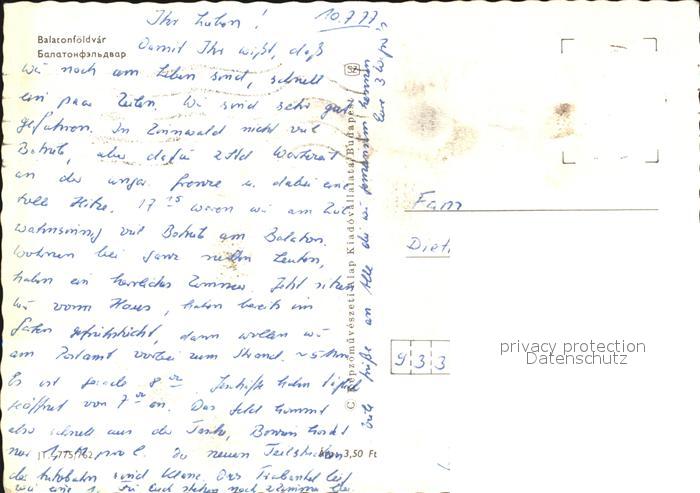 Balatonföldvár
Балатонфэльдвар
10.7.77
Ihr Lieben!
Damit Ihr wißt, daß
wir noch am Leben sind, schnell
ein paar Zeilen. Wir sind sehr gut
gefahren. In Zinnwald nicht viel
Betrieb, aber dafür 2 Std Wartezeit
an der ungar. Grenze u. dabei eine
tolle Hitze. 17 15 waren wir am Ziel
wahnsinnig viel Betrieb am Balaton.
Wohnen bei ganz netten Leuten,
haben ein herrliches Zimmer. Jetzt sitzen
wir vorm Haus, haben bereits im
Garten gefrühstückt, dann wollen wir
am Postamt vorbei zum Strand.
Es ist gerade 8 Geschäfte haben
geöffnet von 7 an. Das Geld kommt
also schnell aus der Tasche, Benzin
Die neuen
der Autobahn sind Klasse. Der Trabant lief
wie eine 1.
Viele Grüße an Alle die wir gemeinsam kennen
Eure 3
C Képzőművészeti Alap Kiadóvállalata, Budapest
3,50 Ft
Fam
Diet
933
privacy protection
Datenschutz